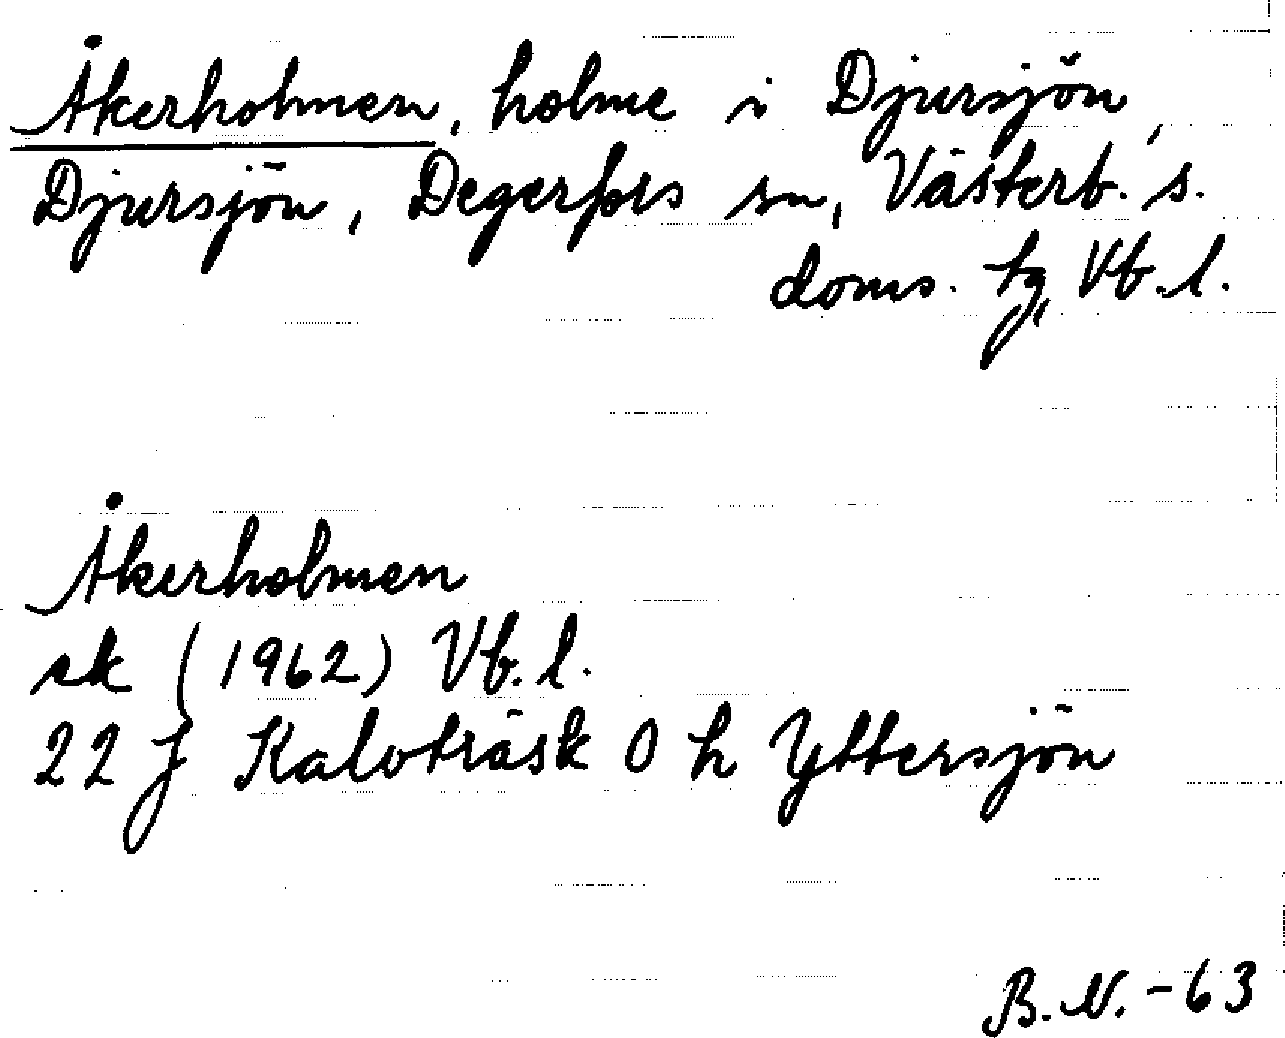 Åkerholmen, holme i Djursjön,
Djursjön, Degerfors sn, Västerb. s.
doms. tg, Vb. l.
Åkerholmen
sk (1962) Vb. l.
22 J Kalvträsk 0 h Yttersjön
B. N. - 63